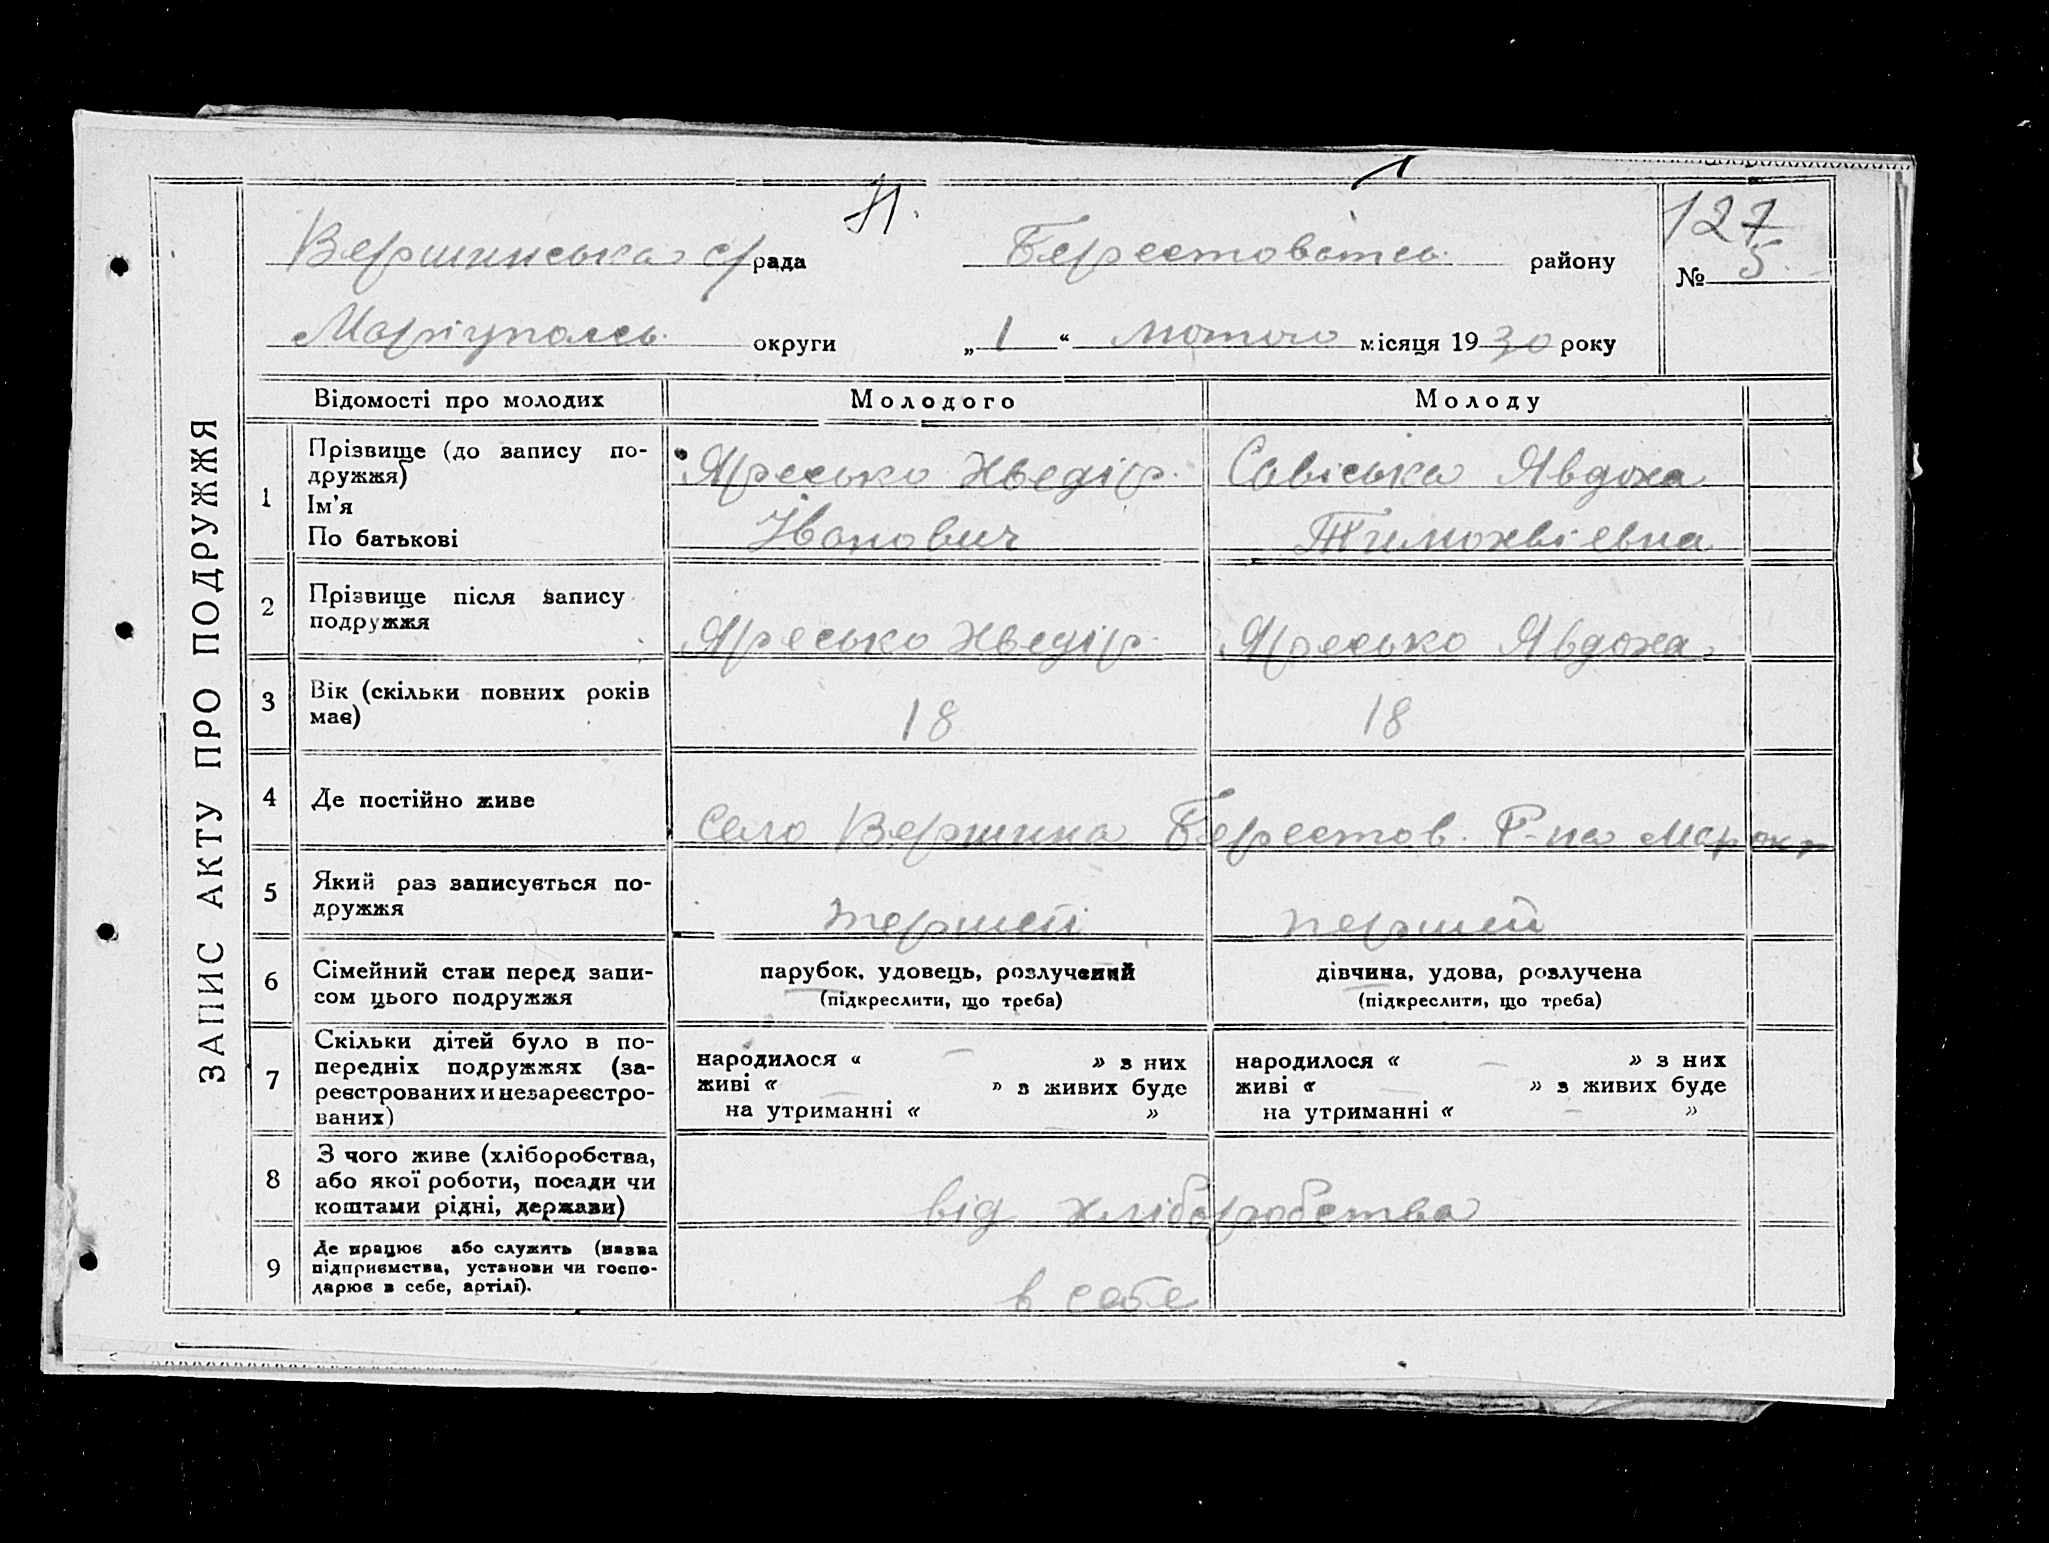 Н.
Вершинська с/рада Берестовětсь. району
127
№ 5.
Маріупольсь. округи „ 1 “ лютого місяця 1930 року
ЗАПИС АКТУ ПРО ПОДРУЖЖЯ
Відомості про молодих Молодого Молоду
1 Прізвище (до запису по-
дружжя)
Ім'я
По батькові
Яресько Хведір. Савіська Явдоха
Іванович Тимохвієвна
2 Прізвище після запису
подружжя
Яресько Хведір. Яресько Явдоха
3 Вік (скільки повних років
має)
18 18
4 Де постійно живе
Село Вершина Берестов. Р-на Мар окр
5 Який раз записується по-
дружжя
першей першей
6 Сімейний стан перед запи-
сом цього подружжя
парубок, удовець, розлучений дівчина, удова, розлучена
(підкреслити, що треба) (підкреслити, що треба)
7 Скільки дітей було в по-
передніх подружжях (за-
реєстрованих и незареєстро-
ваних)
народилося « — » з них народилося « — » з них
живі « — » з живих буде живі « — » з живих буде
на утриманні « » на утриманні « — »
8 З чого живе (хліборобства,
або якої роботи, посади чи
коштами рідні, держави)
від хліборобства
9 Де працює або служить (назва
підприємства, установи чи госпо-
дарює в себе, артілі).
в себе